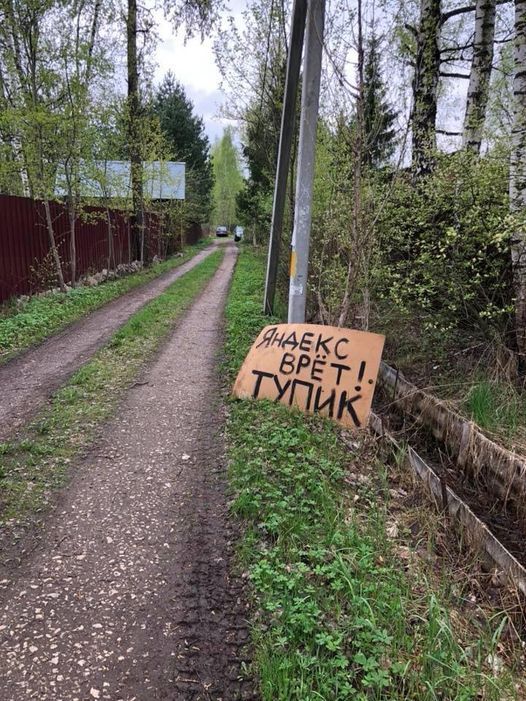 ЯНДЕКС
ВРЁТ!
ТУПИК